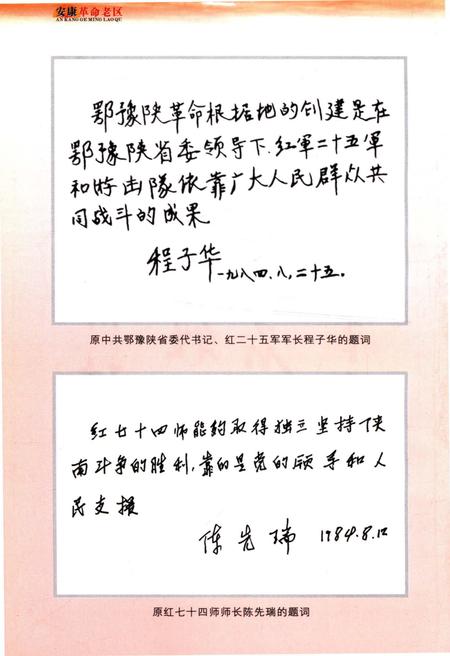 安康革命老区
AN KANG GE MING LAO QU
鄂豫陕革命根据地的创建是在
鄂豫陕省委领导下.红軍二十五軍
和游击隊依靠广大人民群众共
同战斗的成果
程子华
一九八四.八.二十五.
原中共鄂豫陕省委代书记、红二十五军军长程子华的题词
红七十四师能够取得独立坚持陕
南斗争的胜利,靠的是党的领导和人
民支援
陈先瑞 1984.8.12
原红七十四师师长陈先瑞的题词